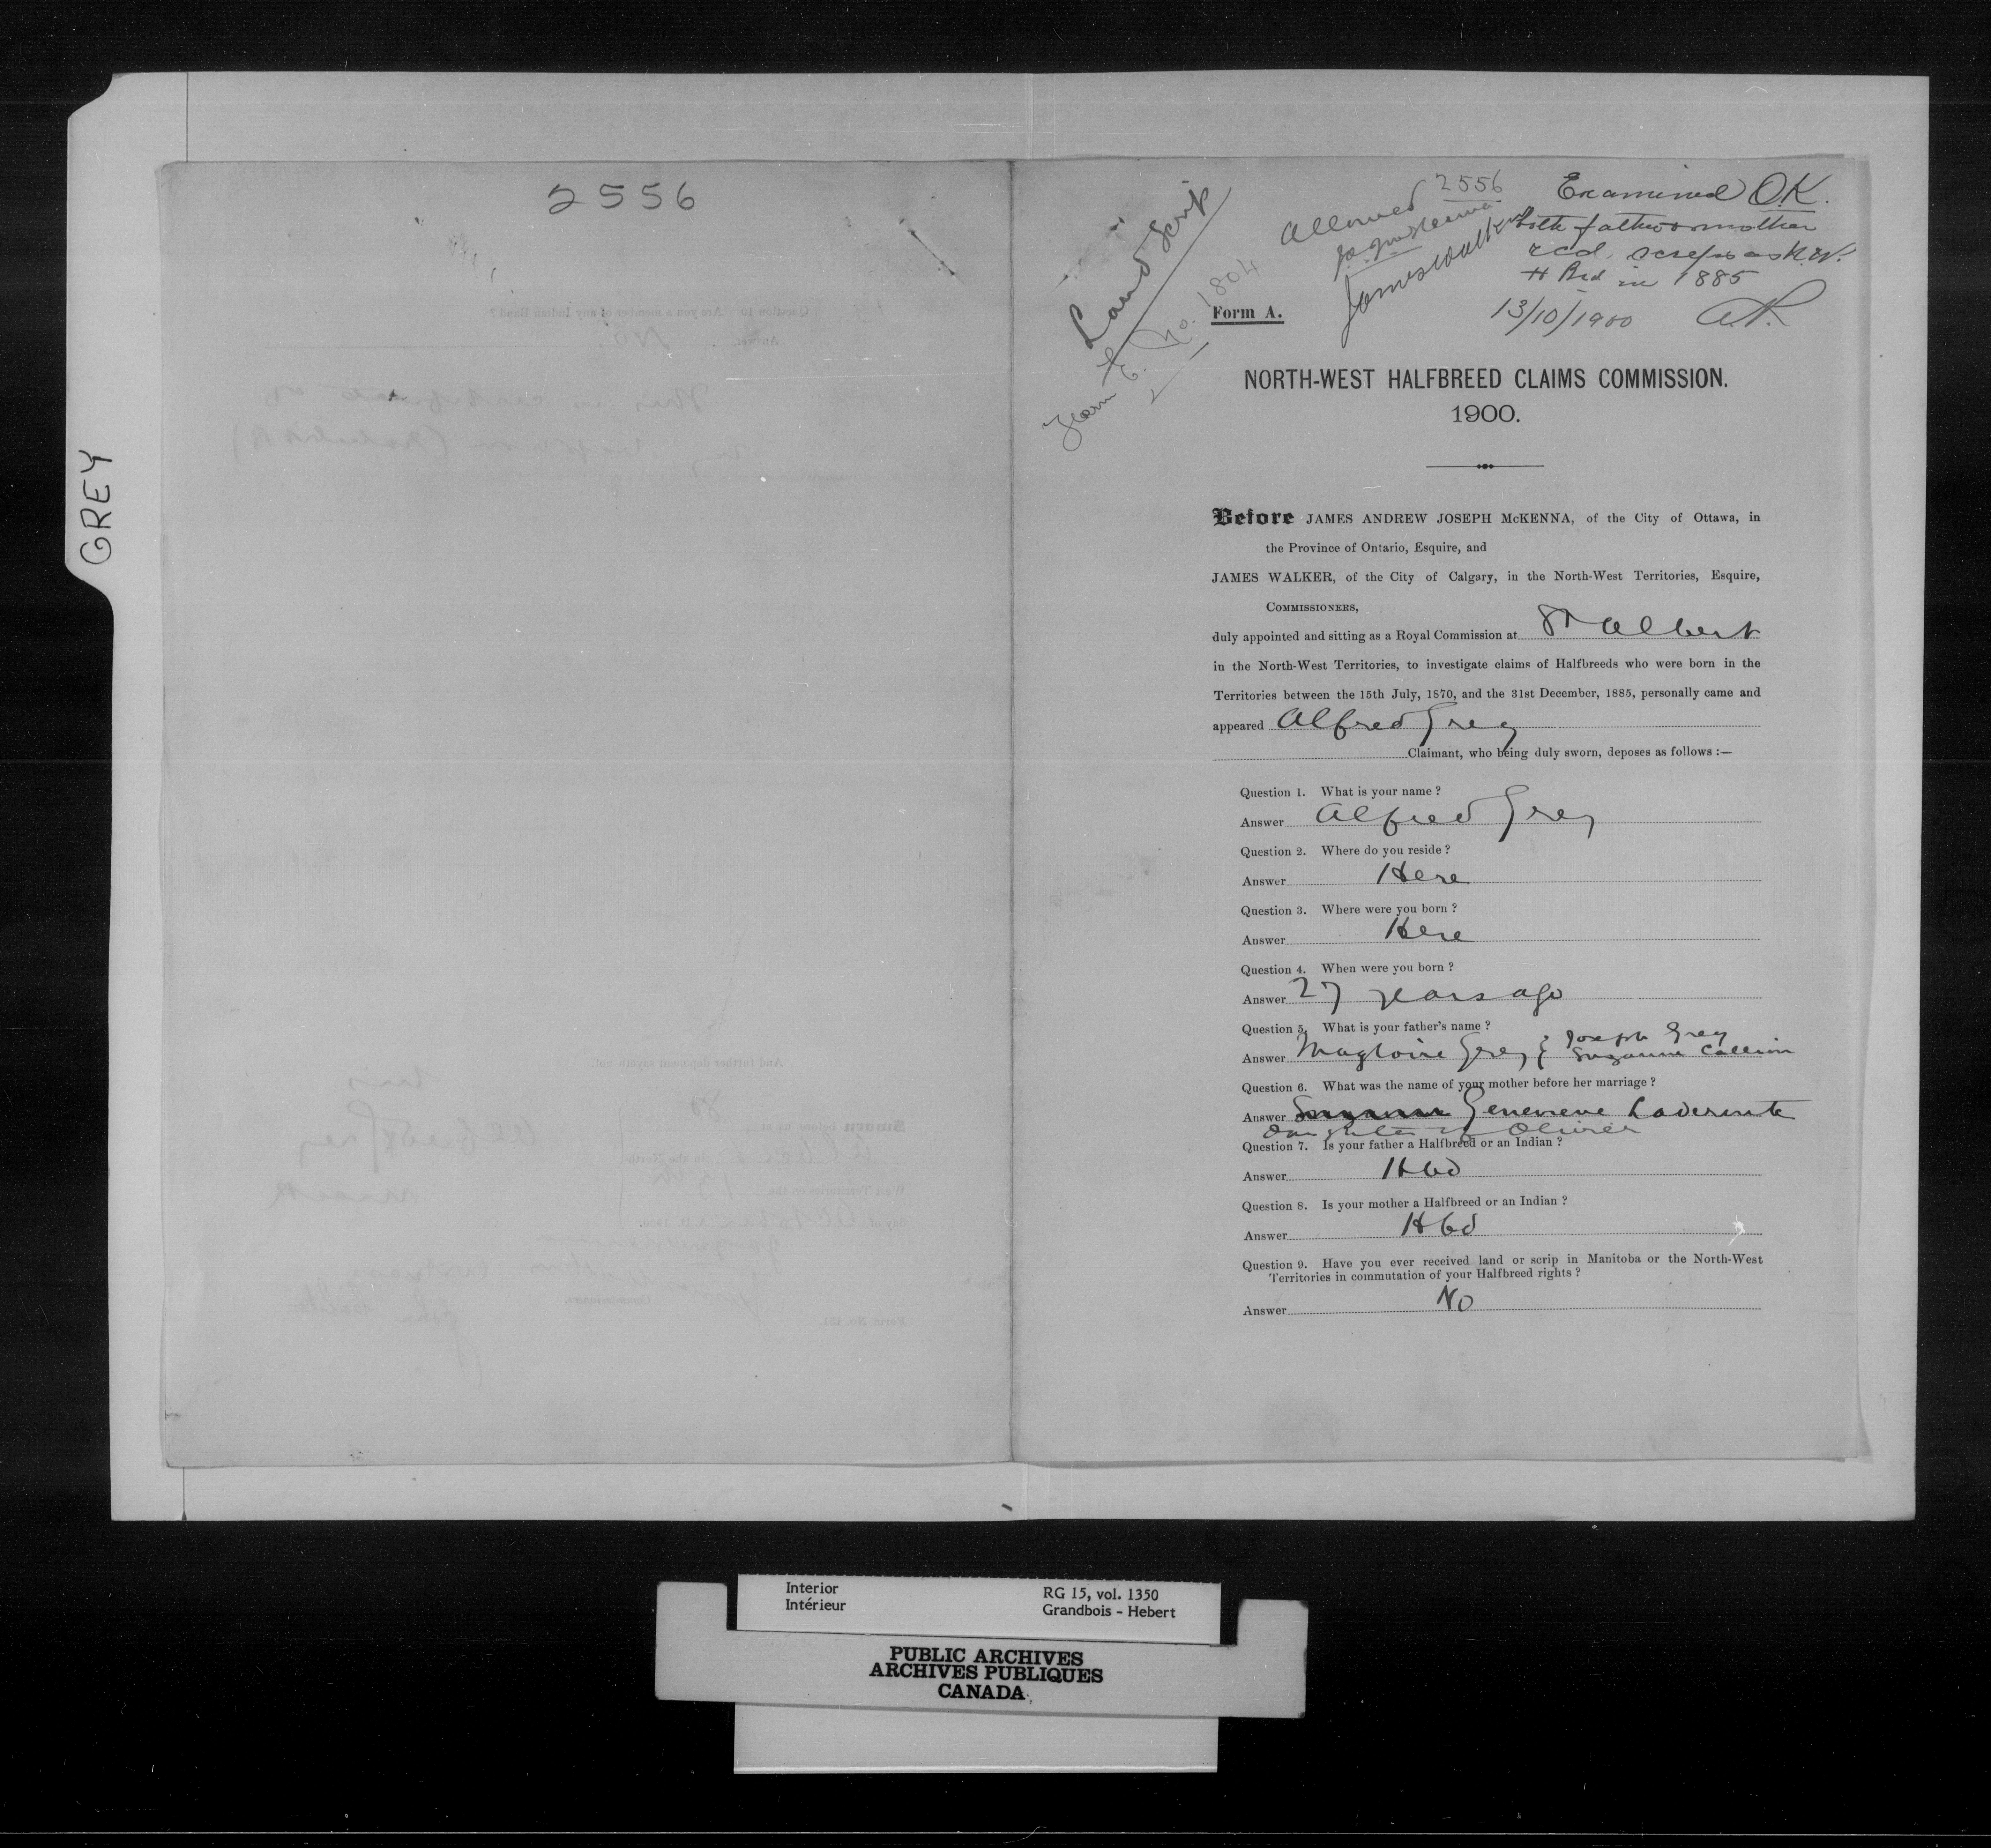 GREY
2556
Land Scrip
Form E. No. 1804
Allowed 2556
James Walker
Examined O.K.
Both father & mother
recd. scrip as N.W.
H Brd in 1885
13/10/1900
Form A.
NORTH-WEST HALFBREED CLAIMS COMMISSION.
1900.
Before JAMES ANDREW JOSEPH McKENNA, of the City of Ottawa, in
the Province of Ontario, Esquire, and
JAMES WALKER, of the City of Calgary, in the North-West Territories, Esquire,
COMMISSIONERS,
duly appointed and sitting as a Royal Commission at St Albert
in the North-West Territories, to investigate claims of Halfbreeds who were born in the
Territories between the 15th July, 1870, and the 31st December, 1885, personally came and
appeared Alfred Grey
Claimant, who being duly sworn, deposes as follows :—
Question 1. What is your name ?
Answer Alfred Grey
Question 2. Where do you reside ?
Answer Here
Question 3. Where were you born ?
Answer Here
Question 4. When were you born ?
Answer 27 years ago
Question 5. What is your father's name ?
Answer Magloire Grey { Joseph Grey
Suzanne Callion
Question 6. What was the name of your mother before her marriage ?
Answer Genevieve Laderoute
daughter of Olivier
Question 7. Is your father a Halfbreed or an Indian ?
Answer Hbd
Question 8. Is your mother a Halfbreed or an Indian ?
Answer Hbd
Question 9. Have you ever received land or scrip in Manitoba or the North-West
Territories in commutation of your Halfbreed rights ?
Answer No
Interior
Intérieur
RG 15, vol. 1350
Grandbois - Hebert
PUBLIC ARCHIVES
ARCHIVES PUBLIQUES
CANADA